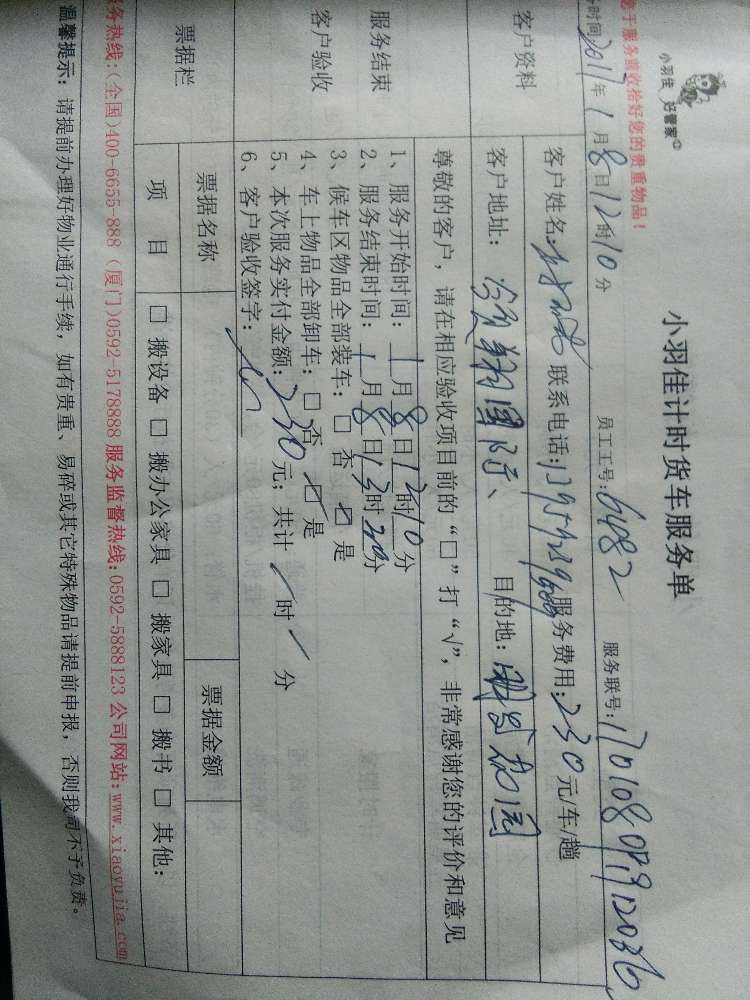 小羽佳 好管家
小羽佳计时货车服务单
于服务前收拾好您的贵重物品!
时间 2011年1月8日12时10分 员工工号:6482 服务联号:
客户资料
客户姓名: 联系电话: 服务费用:230元/车/趟
客户地址: 国际、 目的地: 花园
尊敬的客户,请在相应验收项目前的“□”打“√”,非常感谢您的评价和意见
服务结束
客户验收
1、服务开始时间:1月8日12时10分
2、服务结束时间:1月8日13时20分
3、候车区物品全部装车:□ 否 ☑ 是
4、车上物品全部卸车:□ 否 ☑ 是
5、本次服务实付金额:230元;共计 / 时 / 分
6、客户验收签字:
票据栏
票据名称 票据金额
项 目 □ 搬设备 □ 搬办公家具 □ 搬家具 □ 搬书 □ 其他:
服务热线:(全国)400-6655-888 (厦门)0592-5178888 服务监督热线:0592-5888123 公司网站:www.xiaoyujia.com
温馨提示:请提前办理好物业通行手续,如有贵重、易碎或其它特殊物品请提前申报,否则我司不予负责。